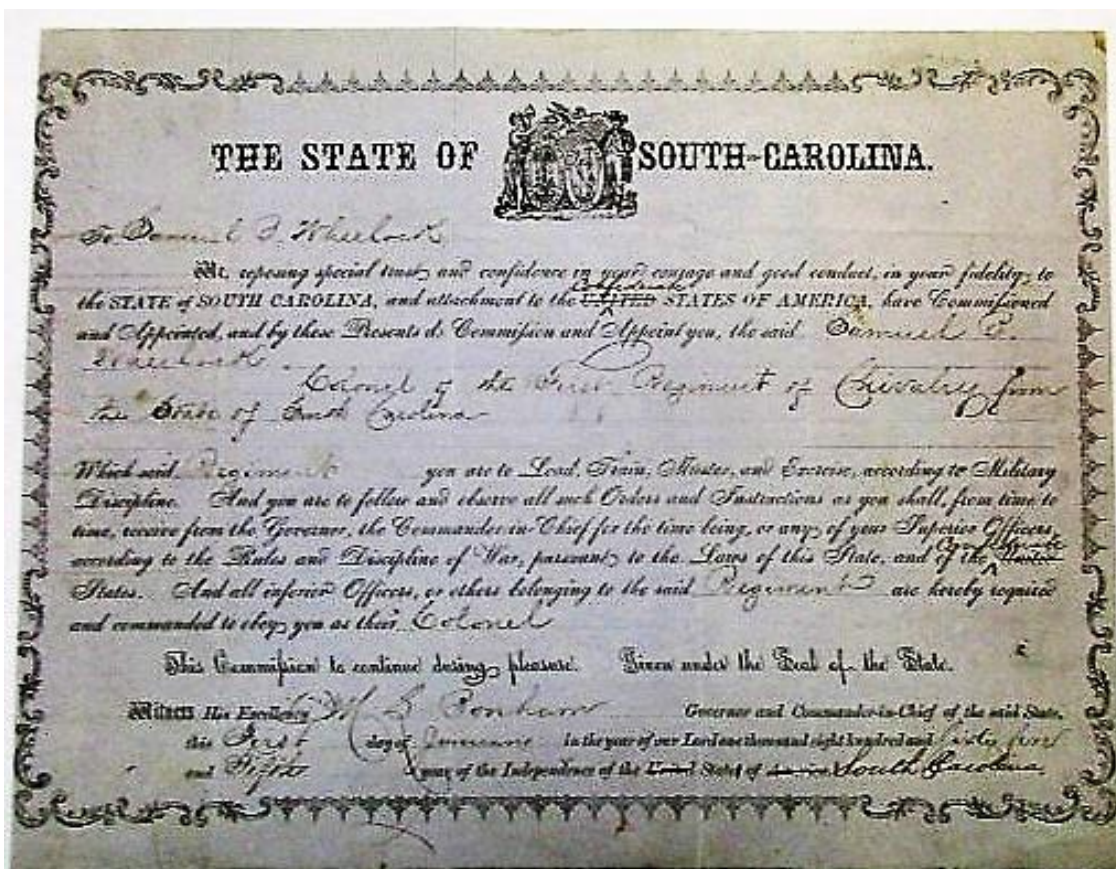 THE STATE OF SOUTH-CAROLINA.
To Samuel P. Wheelock
We, reposing special trust and confidence in your courage and good conduct, in your fidelity to
the STATE of SOUTH CAROLINA, and attachment to the UNITED Confederate STATES OF AMERICA, have Commissioned
and Appointed, and by these Presents do Commission and Appoint you, the said Samuel P.
Wheelock
Colonel of the First Regiment of Chevalry from
the State of South Carolina
Which said Regiment you are to Lead, Train, Muster, and Exercise, according to Military
Discipline. And you are to follow and observe all such Orders and Instructions as you shall, from time to
time, receive from the Governor, the Commander-in-Chief for the time being, or any of your Superior Officers,
according to the Rules and Discipline of War, pursuant to the Laws of this State, and of the United
States. And all inferior Officers, or others belonging to the said Regiment are hereby required
and commanded to obey you as their Colonel
This Commission to continue during pleasure. Given under the Seal of the State.
Witness His Excellency M L Bonham Governor and Commander-in-Chief of the said State,
this First day of in the year of our Lord one thousand eight hundred and sixty
and Fifth year of the Independence of the United State of America South Carolina.